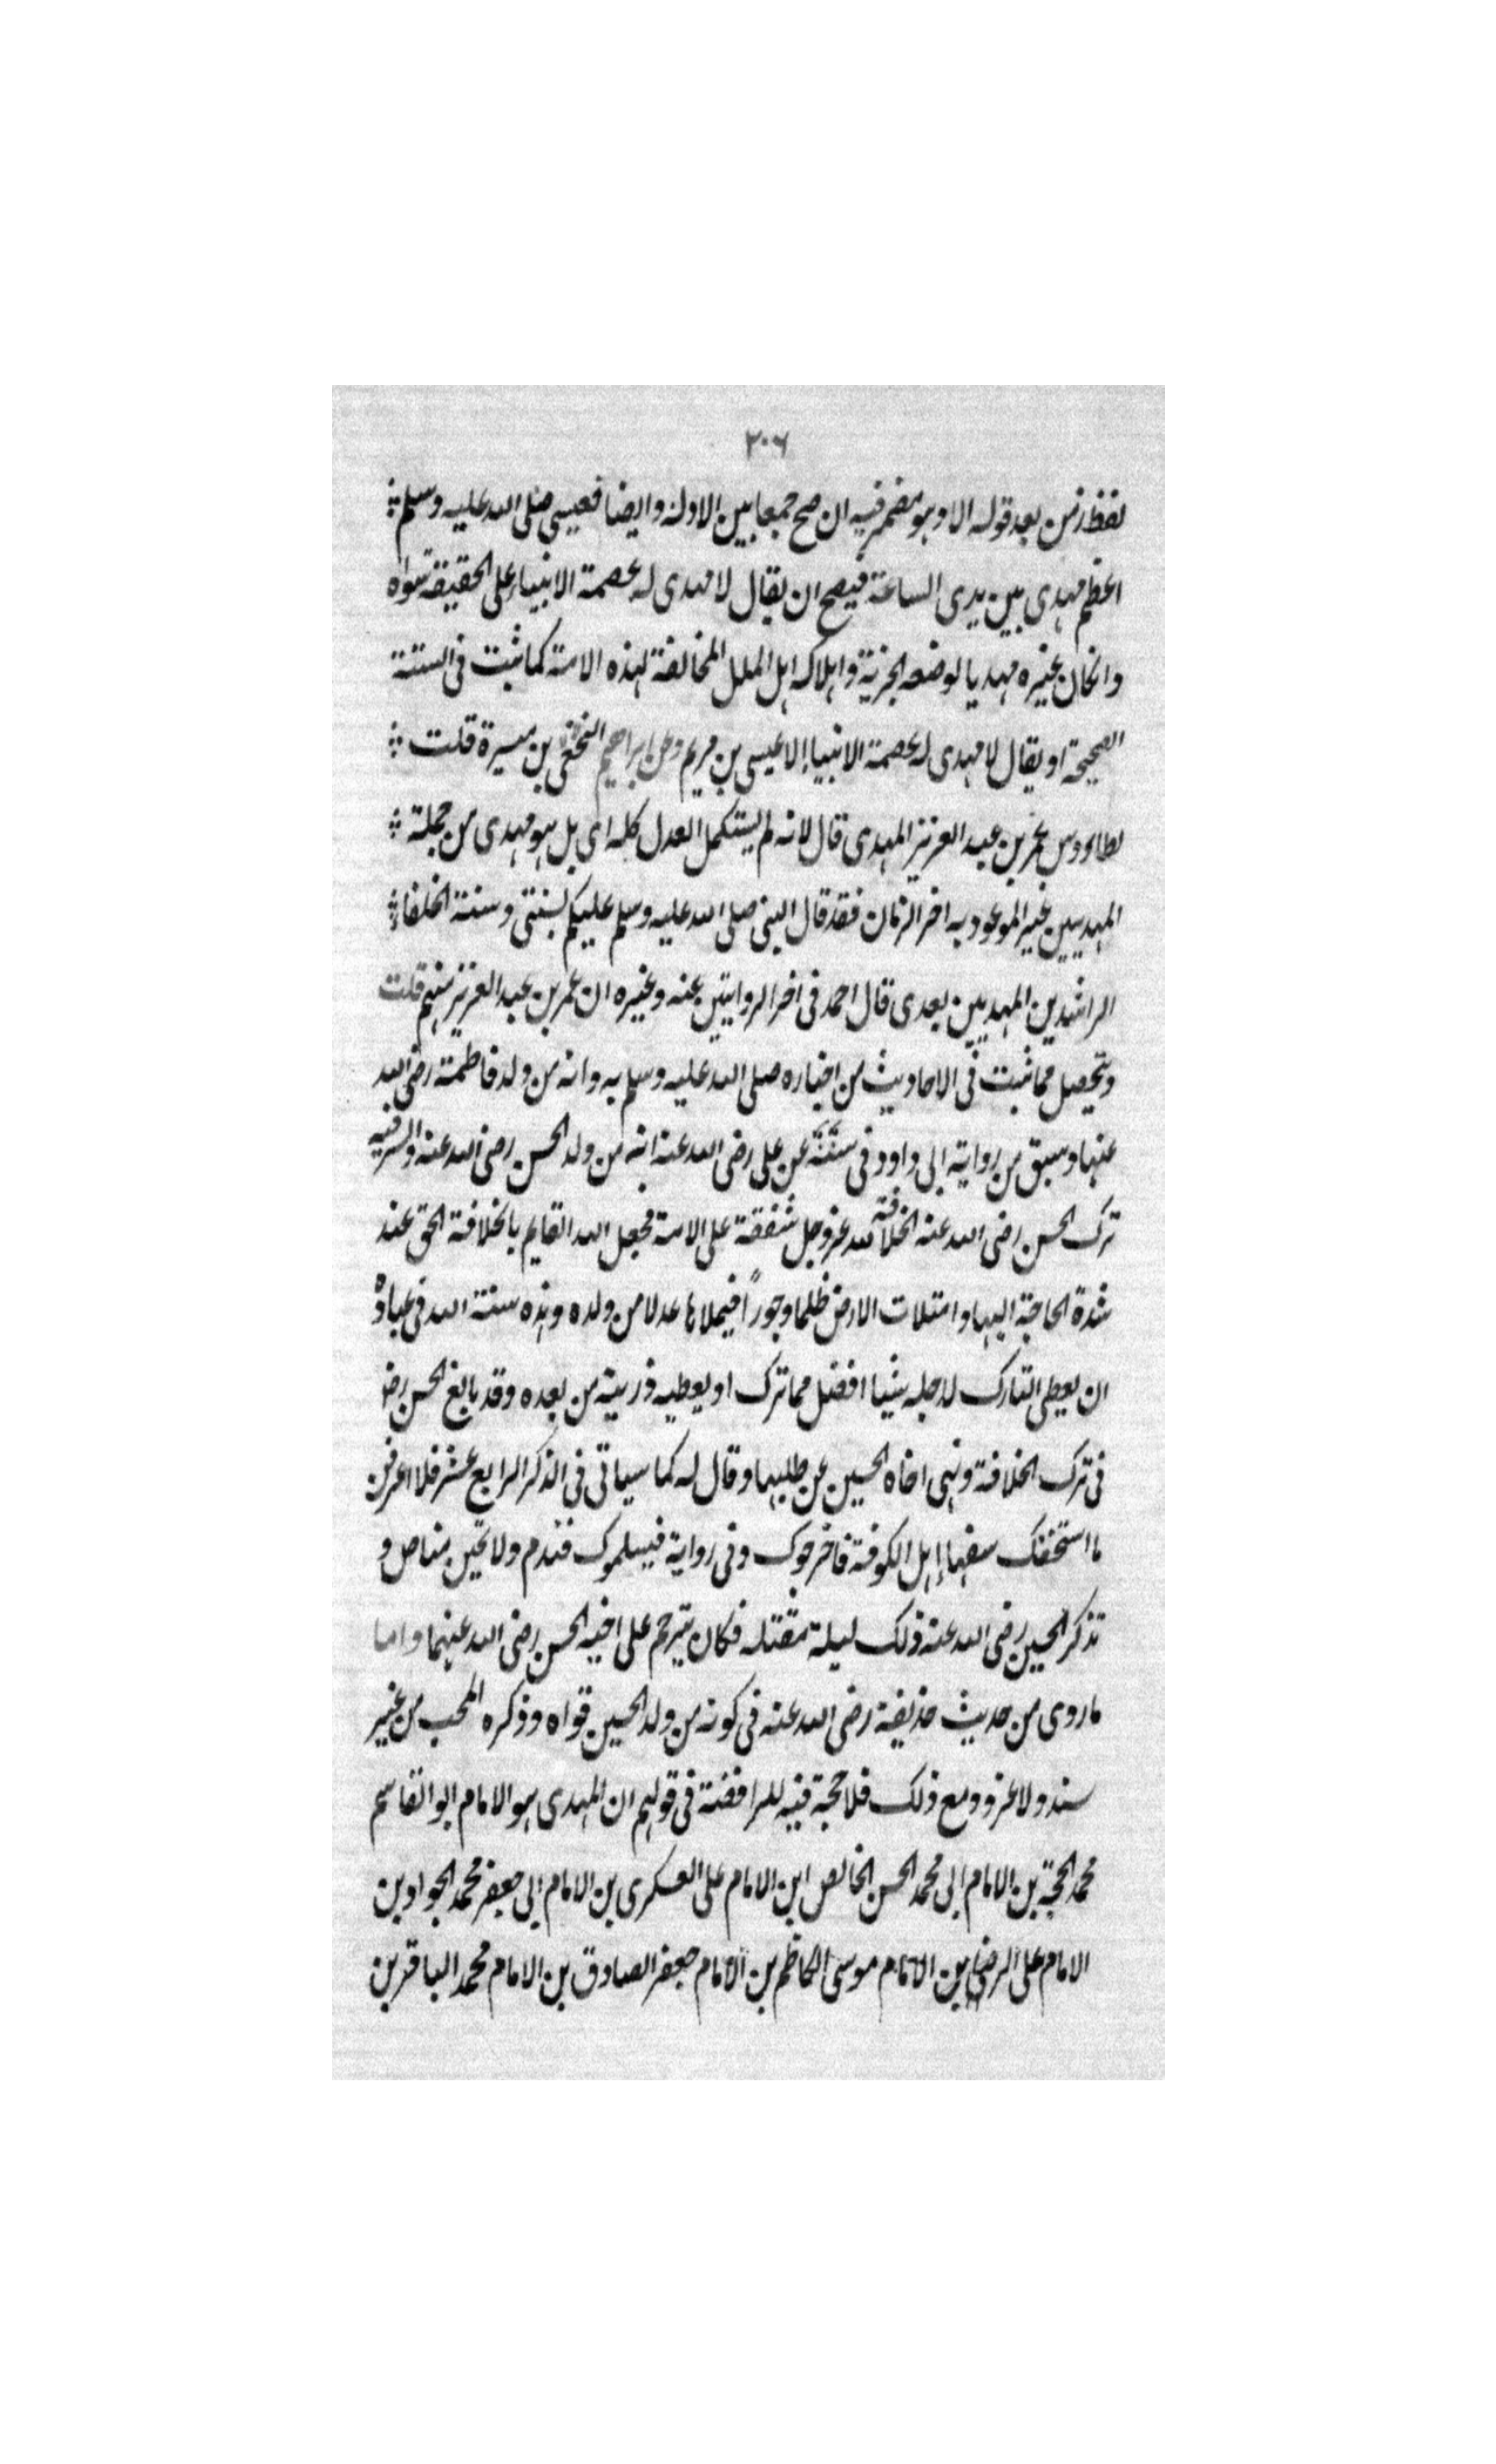 ٣٠٦
لفظ زمن بعد قوله الا وهو مضمر فيه ان صح جمعا بين الادلة وايضا فعيسى صلى الله عليه وسلم
اعظم مهدى بين يدى الساعة فيصح ان يقال لا مهدى له عصمة الانبياء على الحقيقة سواه
وانكان غيره مهديا لوضعه الجزية واهلاكه اهل الملل المخالفة لهذه الامة كما ثبت فى السنة
الصحيحة او يقال لا مهدى له عصمة الانبياء الا عيسى بن مريم وعن ابراهيم النخعى بن ميسرة قلت
لطاووس عمر بن عبد العزيز المهدى قال لانه لم يستكمل العدل كله اى بل هو مهدى من جملة
المهديين غير الموعود به اخر الزمان فقد قال النبى صلى الله عليه وسلم عليكم بسنتى وسنة الخلفاء
الراشدين المهديين بعدى قال احمد فى اخر الروايتين عنه وغيره ان عمر بن عبد العزيز منهم قلت
وتحصل مما ثبت فى الاحاديث من اخباره صلى الله عليه وسلم به وانه من ولد فاطمة رضى الله
عنها وسبق من رواية ابى داود فى سننه عن على رضى الله عنه انه من ولد الحسن رضى الله عنه والسر فيه
ترك الحسن رضى الله عنه الخلافة لله عزوجل شفقة على الامة فجعل الله القايم بالخلافة الحق عند
شدة الحاجة اليها وامتلات الارض ظلما وجوراً فيملاها عدلا من ولده وهذه سنة الله فى عباده
ان يعطى التارك لاجله شيئا افضل مما ترك او يعطيه ذريته من بعده وقد بالغ الحسن رضه
فى ترك الخلافة ونهى اخاه الحسين عن طلبها وقال له كما سياتى فى الذكر الرابع عشر فلا اعرفن
ما استخفك سفهاء اهل الكوفة فاخرجوك وفى رواية فيسلموك فتندم ولا تحين مناص و
تذكر الحسين رضى الله عنه ذلك ليلة مقتله فكان يترحم على اخيه الحسن رضى الله عنهما واما
ما روى من حديث حذيفة رضى الله عنه فى كونه من ولد الحسين فواه وذكره المحب من غير
سند ولا عزو ومع ذلك فلا حجة فيه للرافضة فى قولهم ان المهدى هو الامام ابو القاسم
محمد الحجة بن الامام ابى محمد الحسن الخالص ابن الامام على العسكرى بن الامام ابى جعفر محمد الجواد بن
الامام على الرضا بن الامام موسى الكاظم بن الامام جعفر الصادق بن الامام محمد الباقر بن